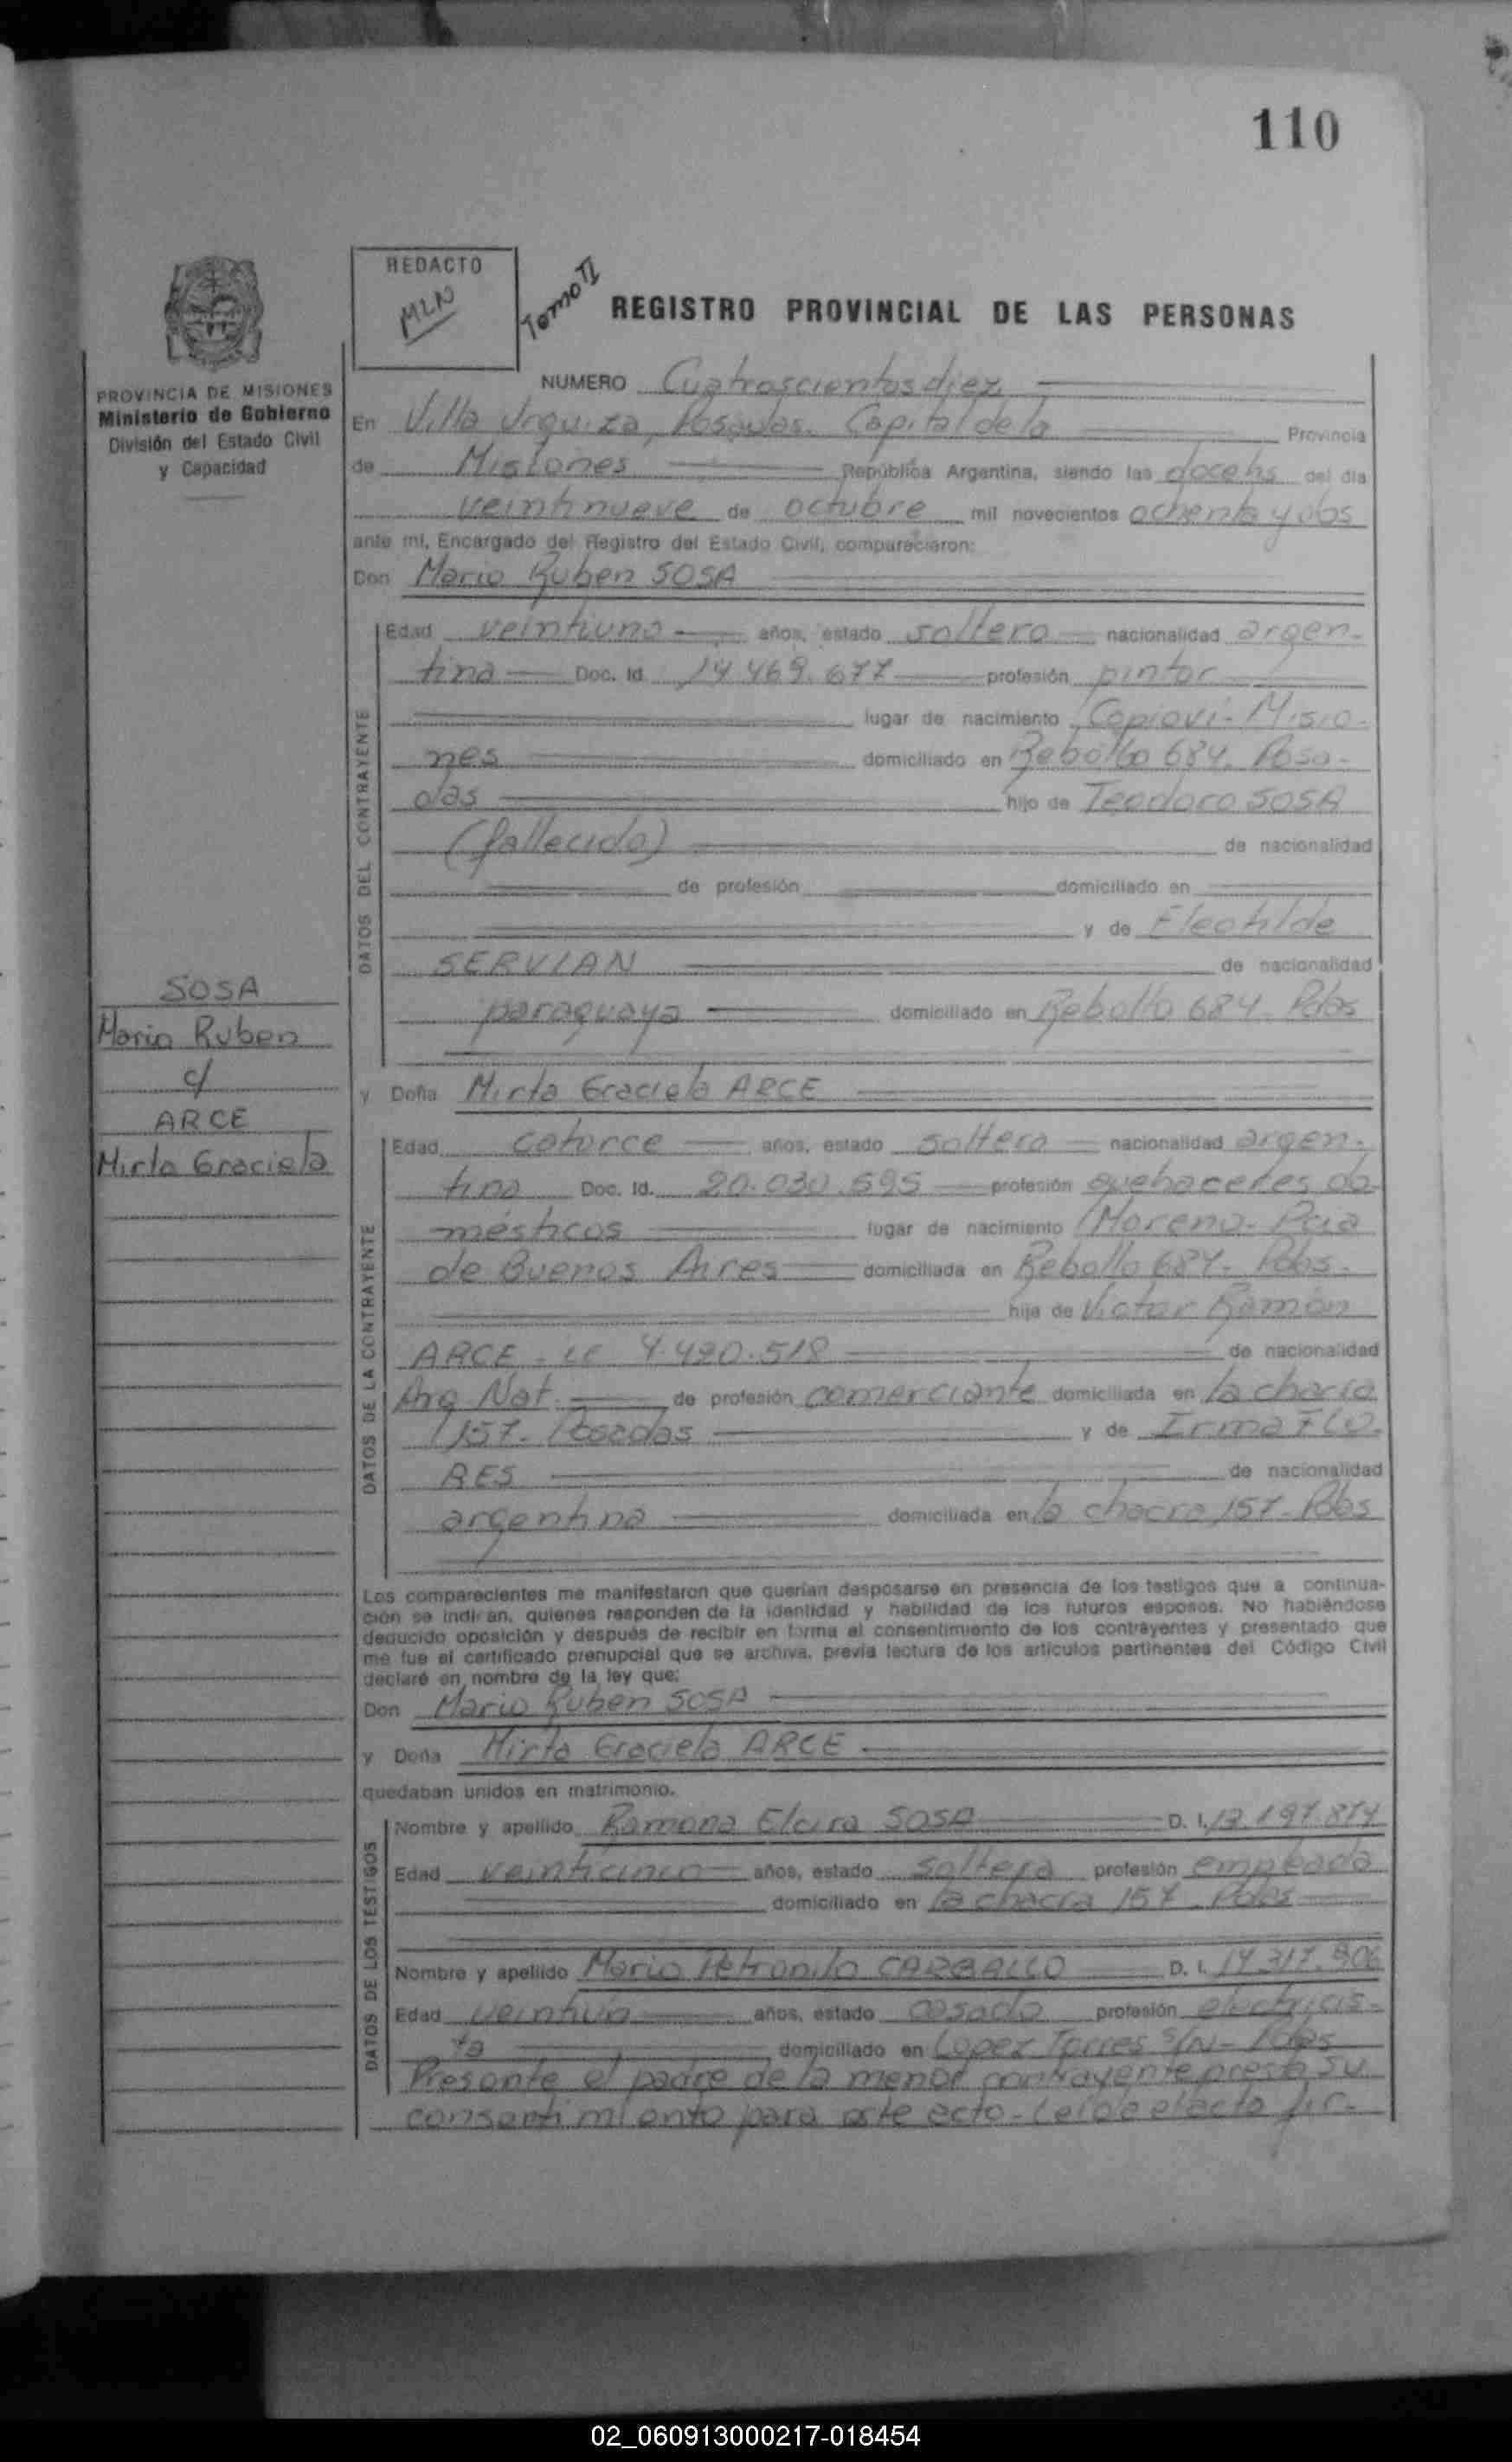 110
REDACTO
MLN
Tomo II
REGISTRO PROVINCIAL DE LAS PERSONAS
PROVINCIA DE MISIONES
Ministerio de Gobierno
División del Estado Civil
y Capacidad
NUMERO Cuatroscientos diez
En Villa Urquiza, Posadas. Capital de la Provincia
de Misiones República Argentina, siendo las doce hs del día
veintinueve de octubre mil novecientos ochenta y dos
ante mi, Encargado del Registro del Estado Civil, comparecieron:
Don Mario Ruben SOSA
DATOS DEL CONTRAYENTE
Edad veintiuno años, estado soltero nacionalidad argen-
tina Doc. Id. 14.469.677 profesión pintor
lugar de nacimiento Capioví - Misio-
nes domiciliado en Rebollo 684. Posa-
das hijo de Teodoro SOSA
(fallecido) de nacionalidad
de profesión domiciliado en
y de Eleotilde
SERVIAN de nacionalidad
paraguaya domiciliado en Rebollo 684. Pdas
SOSA
Mario Ruben
c/
ARCE
Mirta Graciela
y Doña Mirta Graciela ARCE
DATOS DE LA CONTRAYENTE
Edad catorce años, estado soltera nacionalidad argen-
tina Doc. Id. 20.030.595 profesión quehaceres do-
mésticos lugar de nacimiento Moreno - Pcia
de Buenos Aires domiciliada en Rebollo 684. Pdas.
hija de Victor Ramón
ARCE - LE 4.420.518 de nacionalidad
Arg Nat. de profesión comerciante domiciliada en la chacra
157. Posadas y de Irma FLO-
RES de nacionalidad
argentina domiciliada en la chacra 157. Pdas
Los comparecientes me manifestaron que querían desposarse en presencia de los testigos que a continua-
ción se indican, quienes responden de la identidad y habilidad de los futuros esposos. No habiéndose
deducido oposición y después de recibir en forma el consentimiento de los contrayentes y presentado que
me fue el certificado prenupcial que se archiva, previa lectura de los artículos pertinentes del Código Civil
declaré en nombre de la ley que:
Don Mario Ruben SOSA
y Doña Mirta Graciela ARCE
quedaban unidos en matrimonio.
DATOS DE LOS TESTIGOS
Nombre y apellido Ramona Elcira SOSA D. I. 13.197.874
Edad veinticinco años, estado soltera profesión empleada
domiciliado en la chacra 157. Pdas
Nombre y apellido Mario Petronilo CARBALLO D. I. 14.317.906
Edad veintiún años, estado casado profesión electricis-
ta domiciliado en Lopez Torres S/N - Pdas
Presente el padre de la menor contrayente presta su
consentimiento para este acto - Leída el acta fir-
02_060913000217-018454